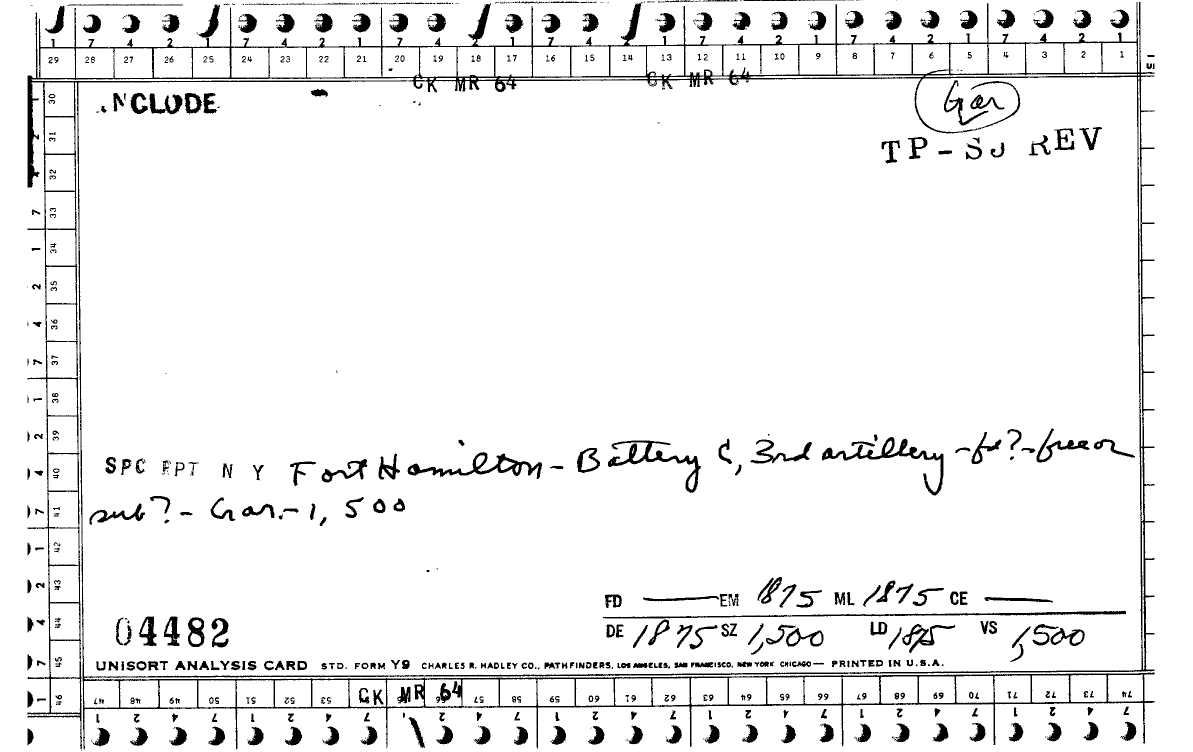 1 7 4 2 1 7 4 2 1 7 4 2 1 7 4 2 1 7 4 2 1 7 4 2 1 7 4 2 1
29 28 27 26 25 24 23 22 21 20 19 18 17 16 15 14 13 12 11 10 9 8 7 6 5 4 3 2 1
CK MR 64 CK MR 64
NCLUDE
Gar
TP-SU REV
30
31
32
7 33
1 34
2 35
4 36
7 37
1 38
2 39
4 40
7 41
1 42
2 43
4 44
7 45
1 46
SPC RPT N Y Fort Hamilton - Battery C, 3rd artillery - fd? - free or
sub? - Gar. - 1,500
FD — EM 1875 ML 1875 CE —
DE 1875 SZ 1,500 LD 1875 VS 1,500
04482
UNISORT ANALYSIS CARD STD. FORM Y9 CHARLES R. HADLEY CO., PATHFINDERS, LOS ANGELES, SAN FRANCISCO, NEW YORK CHICAGO — PRINTED IN U.S.A.
47 48 49 50 51 52 53 CK MR 64 57 58 59 60 61 62 63 64 65 66 67 68 69 70 71 72 73 74
1 2 4 7 1 2 4 7 1 2 4 7 1 2 4 7 1 2 4 7 1 2 4 7